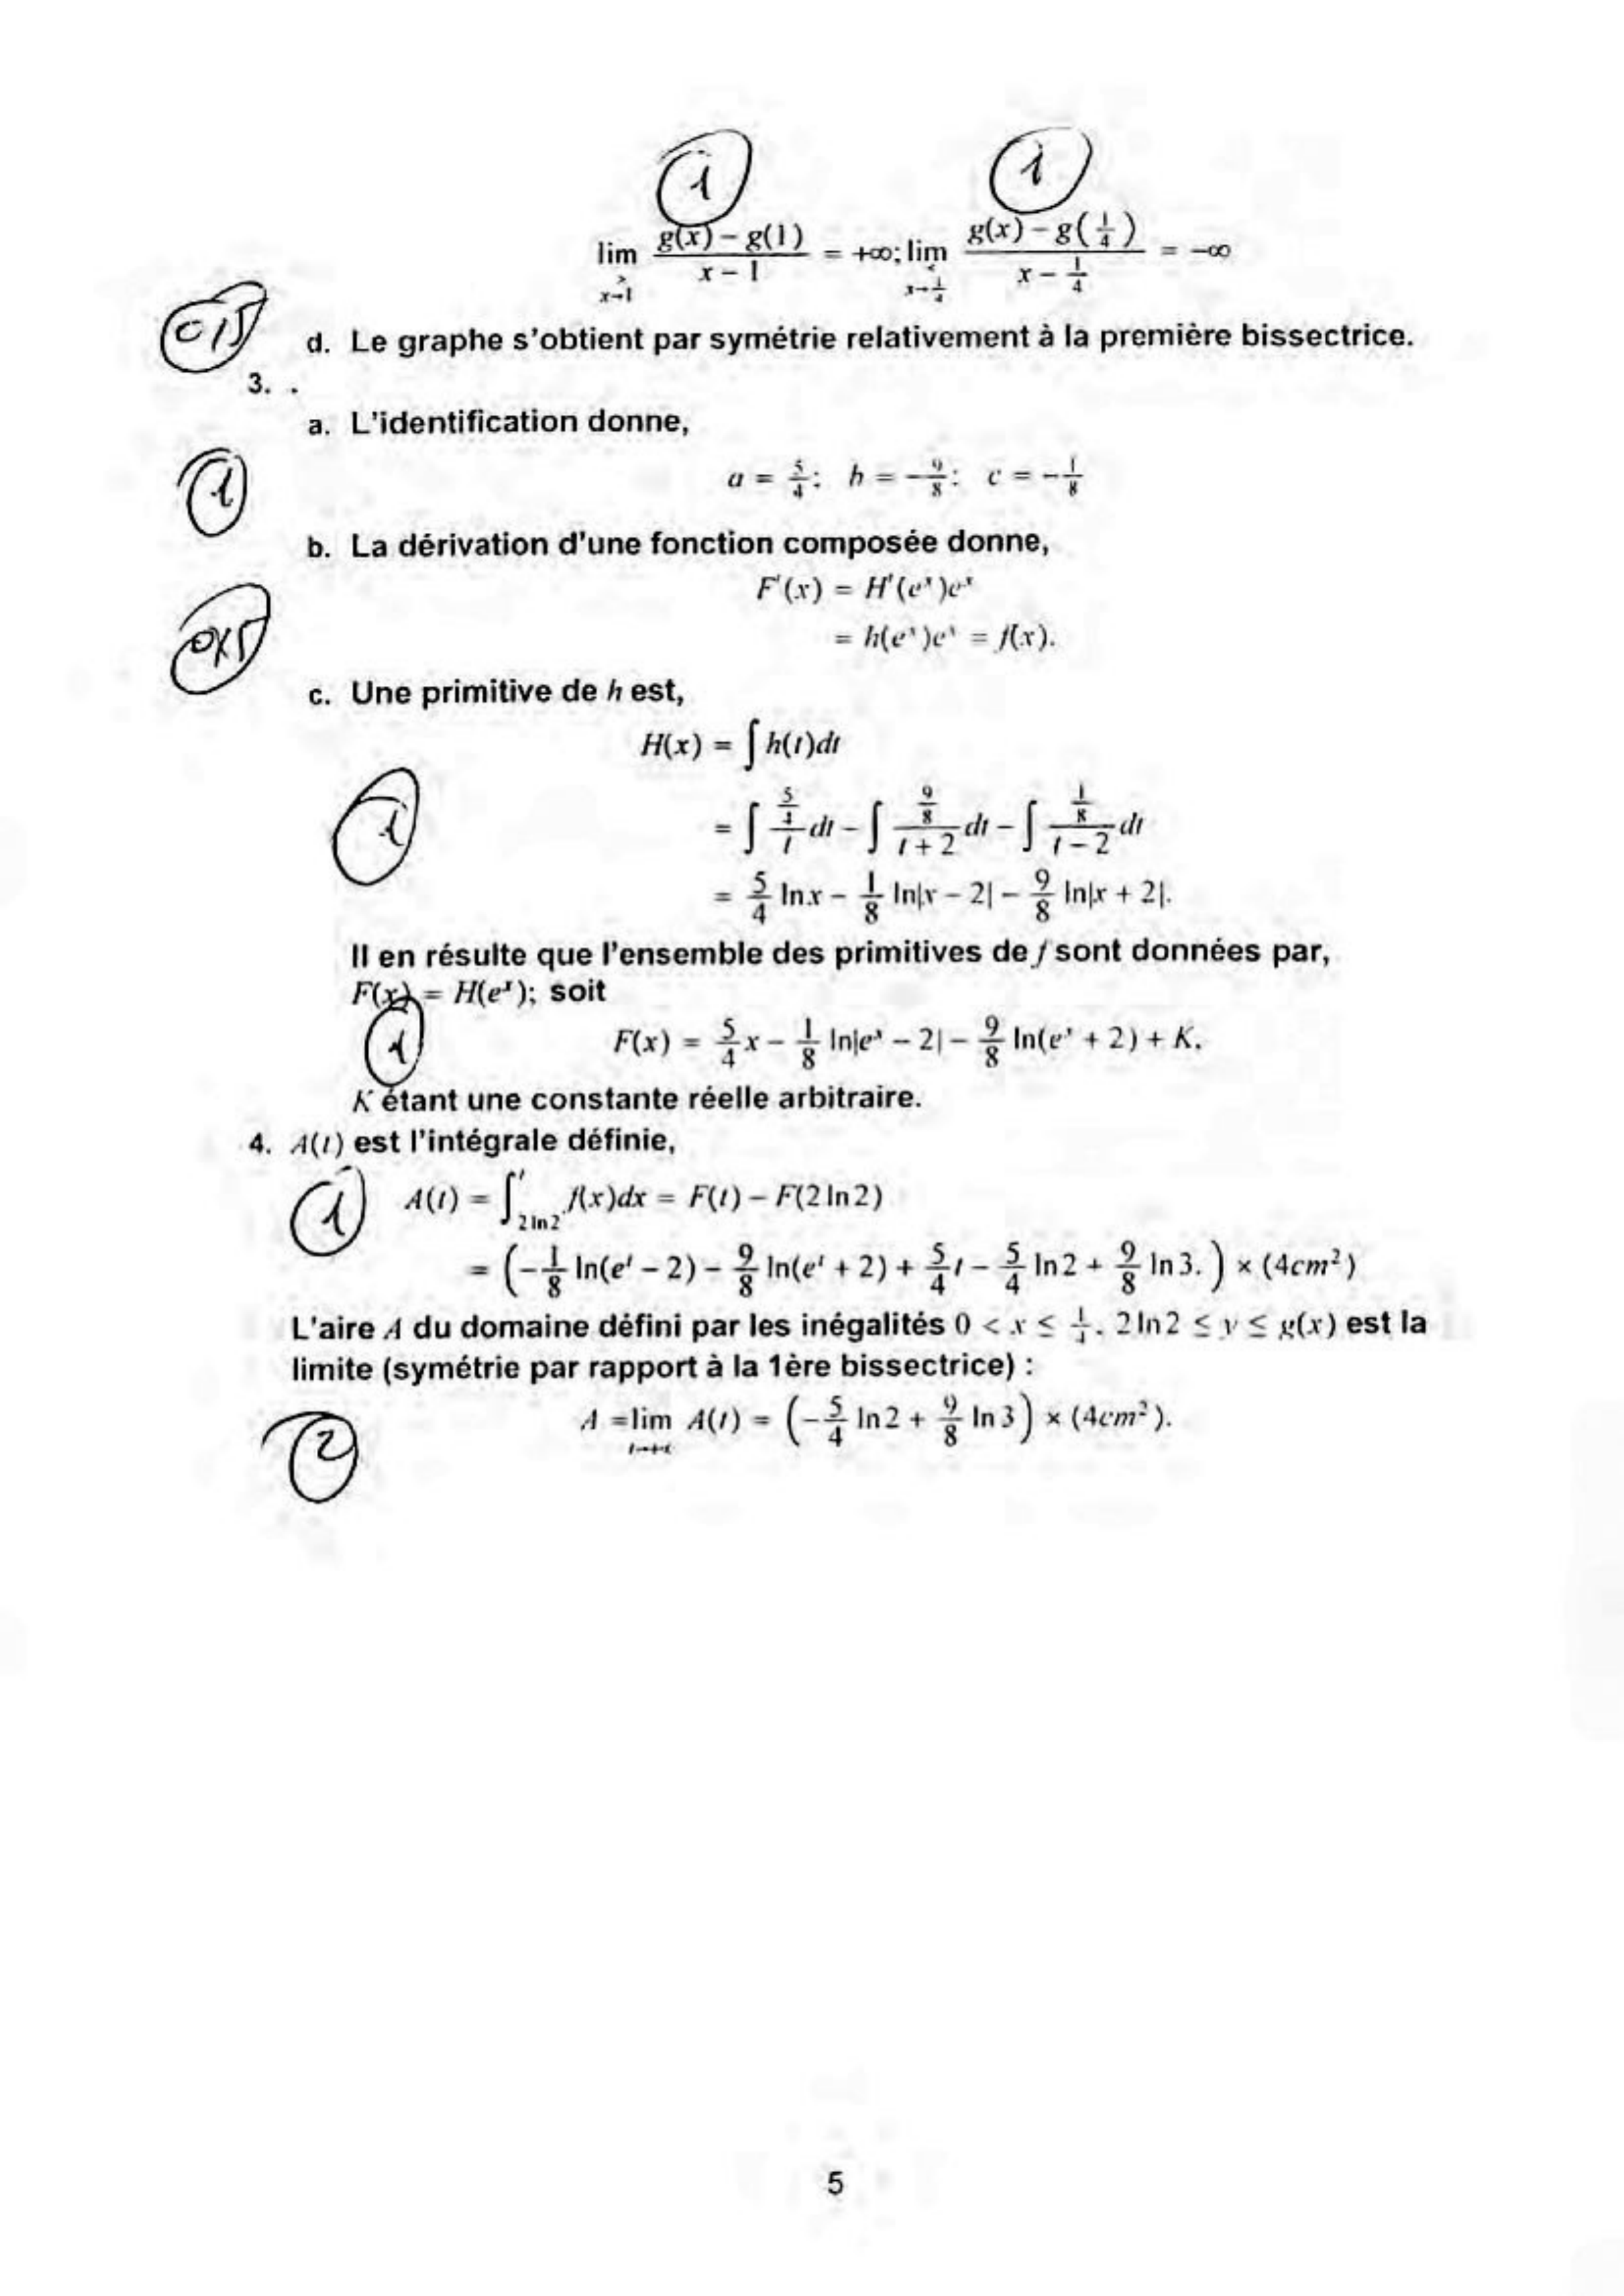 1 1
lim g(x) − g(1) / x − 1 = +∞; lim g(x) − g(1/4) / x − 1/4 = −∞
x→1 x→1/4
0,5
d. Le graphe s'obtient par symétrie relativement à la première bissectrice.
3. .
a. L'identification donne,
1
a = 5/4; b = −9/8; c = −1/8
b. La dérivation d'une fonction composée donne,
F'(x) = H'(eˣ)eˣ
= h(eˣ)eˣ = f(x).
c. Une primitive de h est,
H(x) = ∫ h(t)dt
1
= ∫ (5/4)/t dt − ∫ (9/8)/(t + 2) dt − ∫ (1/8)/(t − 2) dt
= 5/4 ln x − 1/8 ln|x − 2| − 9/8 ln|x + 2|.
Il en résulte que l'ensemble des primitives de f sont données par,
F(x) = H(eˣ); soit
1
F(x) = 5/4 x − 1/8 ln|eˣ − 2| − 9/8 ln(eˣ + 2) + K.
K étant une constante réelle arbitraire.
4. A(t) est l'intégrale définie,
1
A(t) = ∫ 2 ln 2 t f(x)dx = F(t) − F(2 ln 2)
= (−1/8 ln(eᵗ − 2) − 9/8 ln(eᵗ + 2) + 5/4 t − 5/4 ln 2 + 9/8 ln 3. ) × (4cm²)
L'aire A du domaine défini par les inégalités 0 < x ≤ 1/4, 2 ln 2 ≤ y ≤ g(x) est la
limite (symétrie par rapport à la 1ère bissectrice) :
A = lim A(t) = (−5/4 ln 2 + 9/8 ln 3) × (4cm²).
2
5